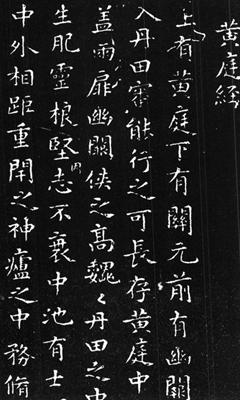 黄庭經
上有黄庭下有關元前有幽闕
入丹田審能行之可長存黄庭中
盖兩扉幽闕俠之高巍〻丹田之中
生肥靈根堅志不衰中池有士
中外相距重閇之神廬之中務脩